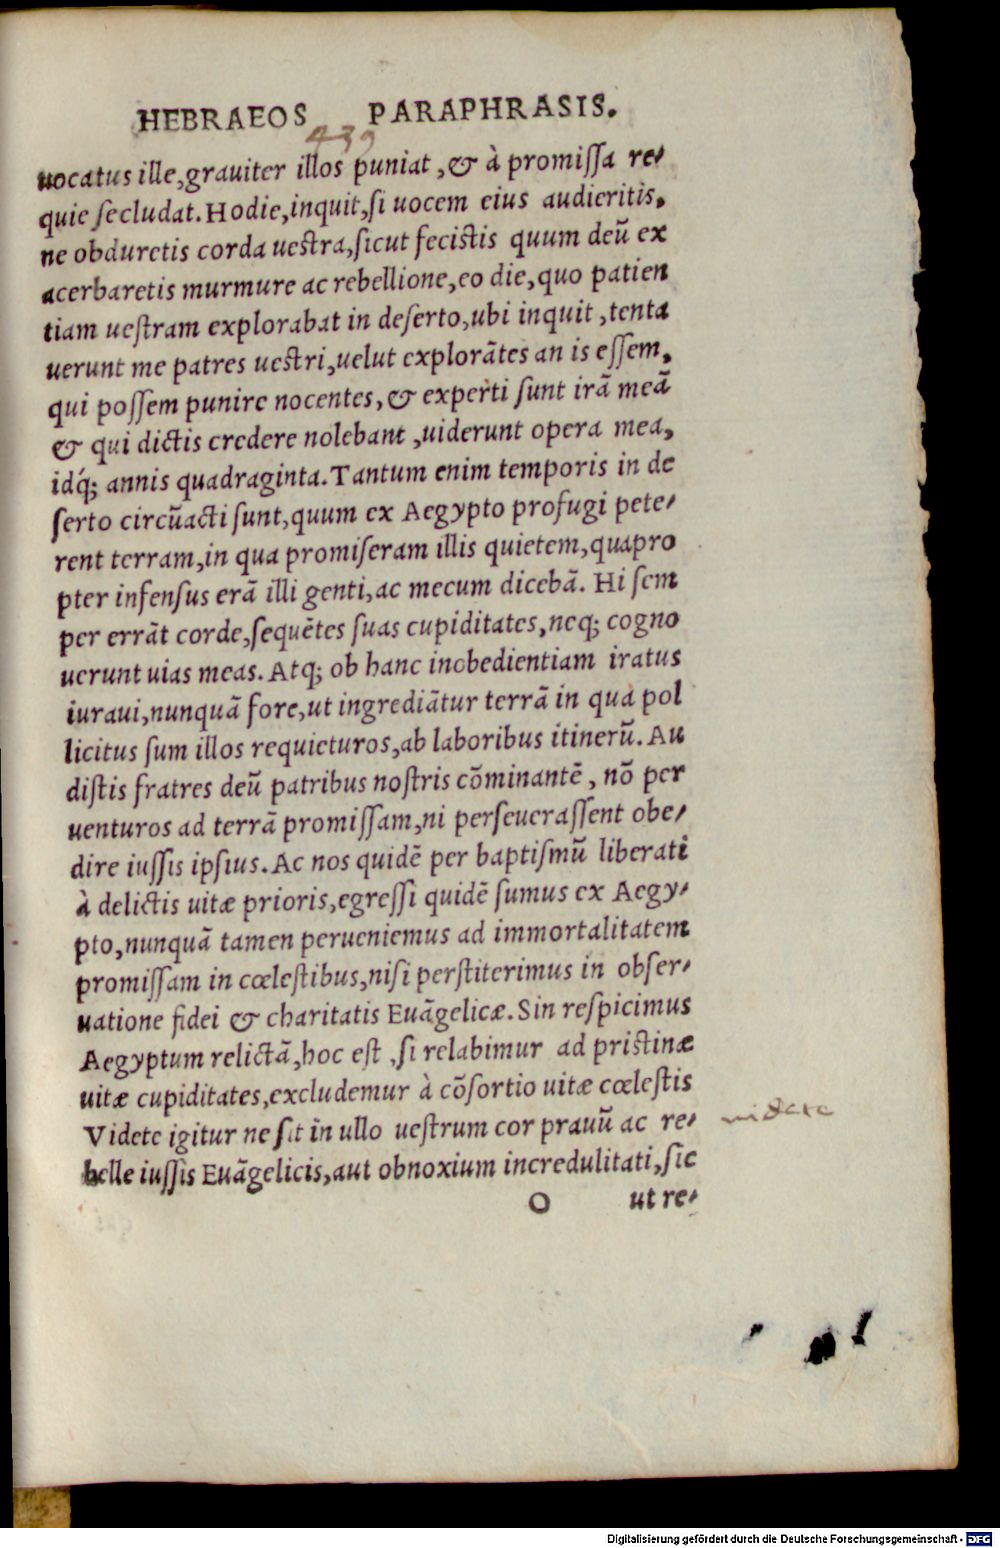 HEBRAEOS PARAPHRASIS.
439
uocatus ille,grauiter illos puniat,& à promissa re-
quie secludat. Hodie,inquit,si uocem eius audieritis,
ne obduretis corda uestra,sicut fecistis quum deũ ex
acerbaretis murmure ac rebellione,eo die,quo patien
tiam uestram explorabat in deserto,ubi inquit,tenta
uerunt me patres uestri,uelut explorãtes an is essem,
qui possem punire nocentes,& experti sunt irã meã
& qui dictis credere nolebant,uiderunt opera mea,
idq́; annis quadraginta. Tantum enim temporis in de
serto circũacti sunt,quum ex Aegypto profugi pete-
rent terram,in qua promiseram illis quietem,quapro
pter infensus erã illi genti,ac mecum dicebã. Hi sem
per errãt corde,sequẽtes suas cupiditates,neq; cogno
uerunt uias meas. Atq; ob hanc inobedientiam iratus
iuraui,nunquã fore,ut ingrediãtur terrã in qua pol
licitus sum illos requieturos,ab laboribus itinerũ. Au
distis fratres deũ patribus nostris cõminantẽ, nõ per
uenturos ad terrã promissam,ni perseuerassent obe-
dire iussis ipsius. Ac nos quidẽ per baptismũ liberati
à delictis uitæ prioris,egressi quidẽ sumus ex Aegy-
pto,nunquã tamen perueniemus ad immortalitatem
promissam in cœlestibus,nisi perstiterimus in obser-
uatione fidei & charitatis Euãgelicæ. Sin respicimus
Aegyptum relictã,hoc est,si relabimur ad pristinæ
uitæ cupiditates,excludemur à cõsortio uitæ cœlestis
Videte igitur ne sit in ullo uestrum cor prauũ ac re-
videte
belle iussis Euãgelicis,aut obnoxium incredulitati,sic
O ut re-
Digitalisierung gefördert durch die Deutsche Forschungsgemeinschaft - DFG